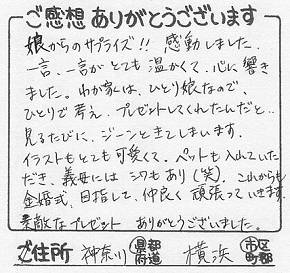 ご感想ありがとうございます
娘からのサプライズ!! 感動しました。
一言、一言がとても温かくて、心に響き
ました。わが家は、ひとり娘なので、
ひとりで考え、プレゼントしてくれたんだと…
見るたびに、ジーンときてしまいます。
イラストもとても可愛くて、ペットも入れていた
だき、義母にはシワもあり(笑)、これからも
金婚式、目指して、仲良く頑張っていきます。
素敵なプレゼント ありがとうございました。
ご住所 神奈川 都道府県 横浜 市区町郡